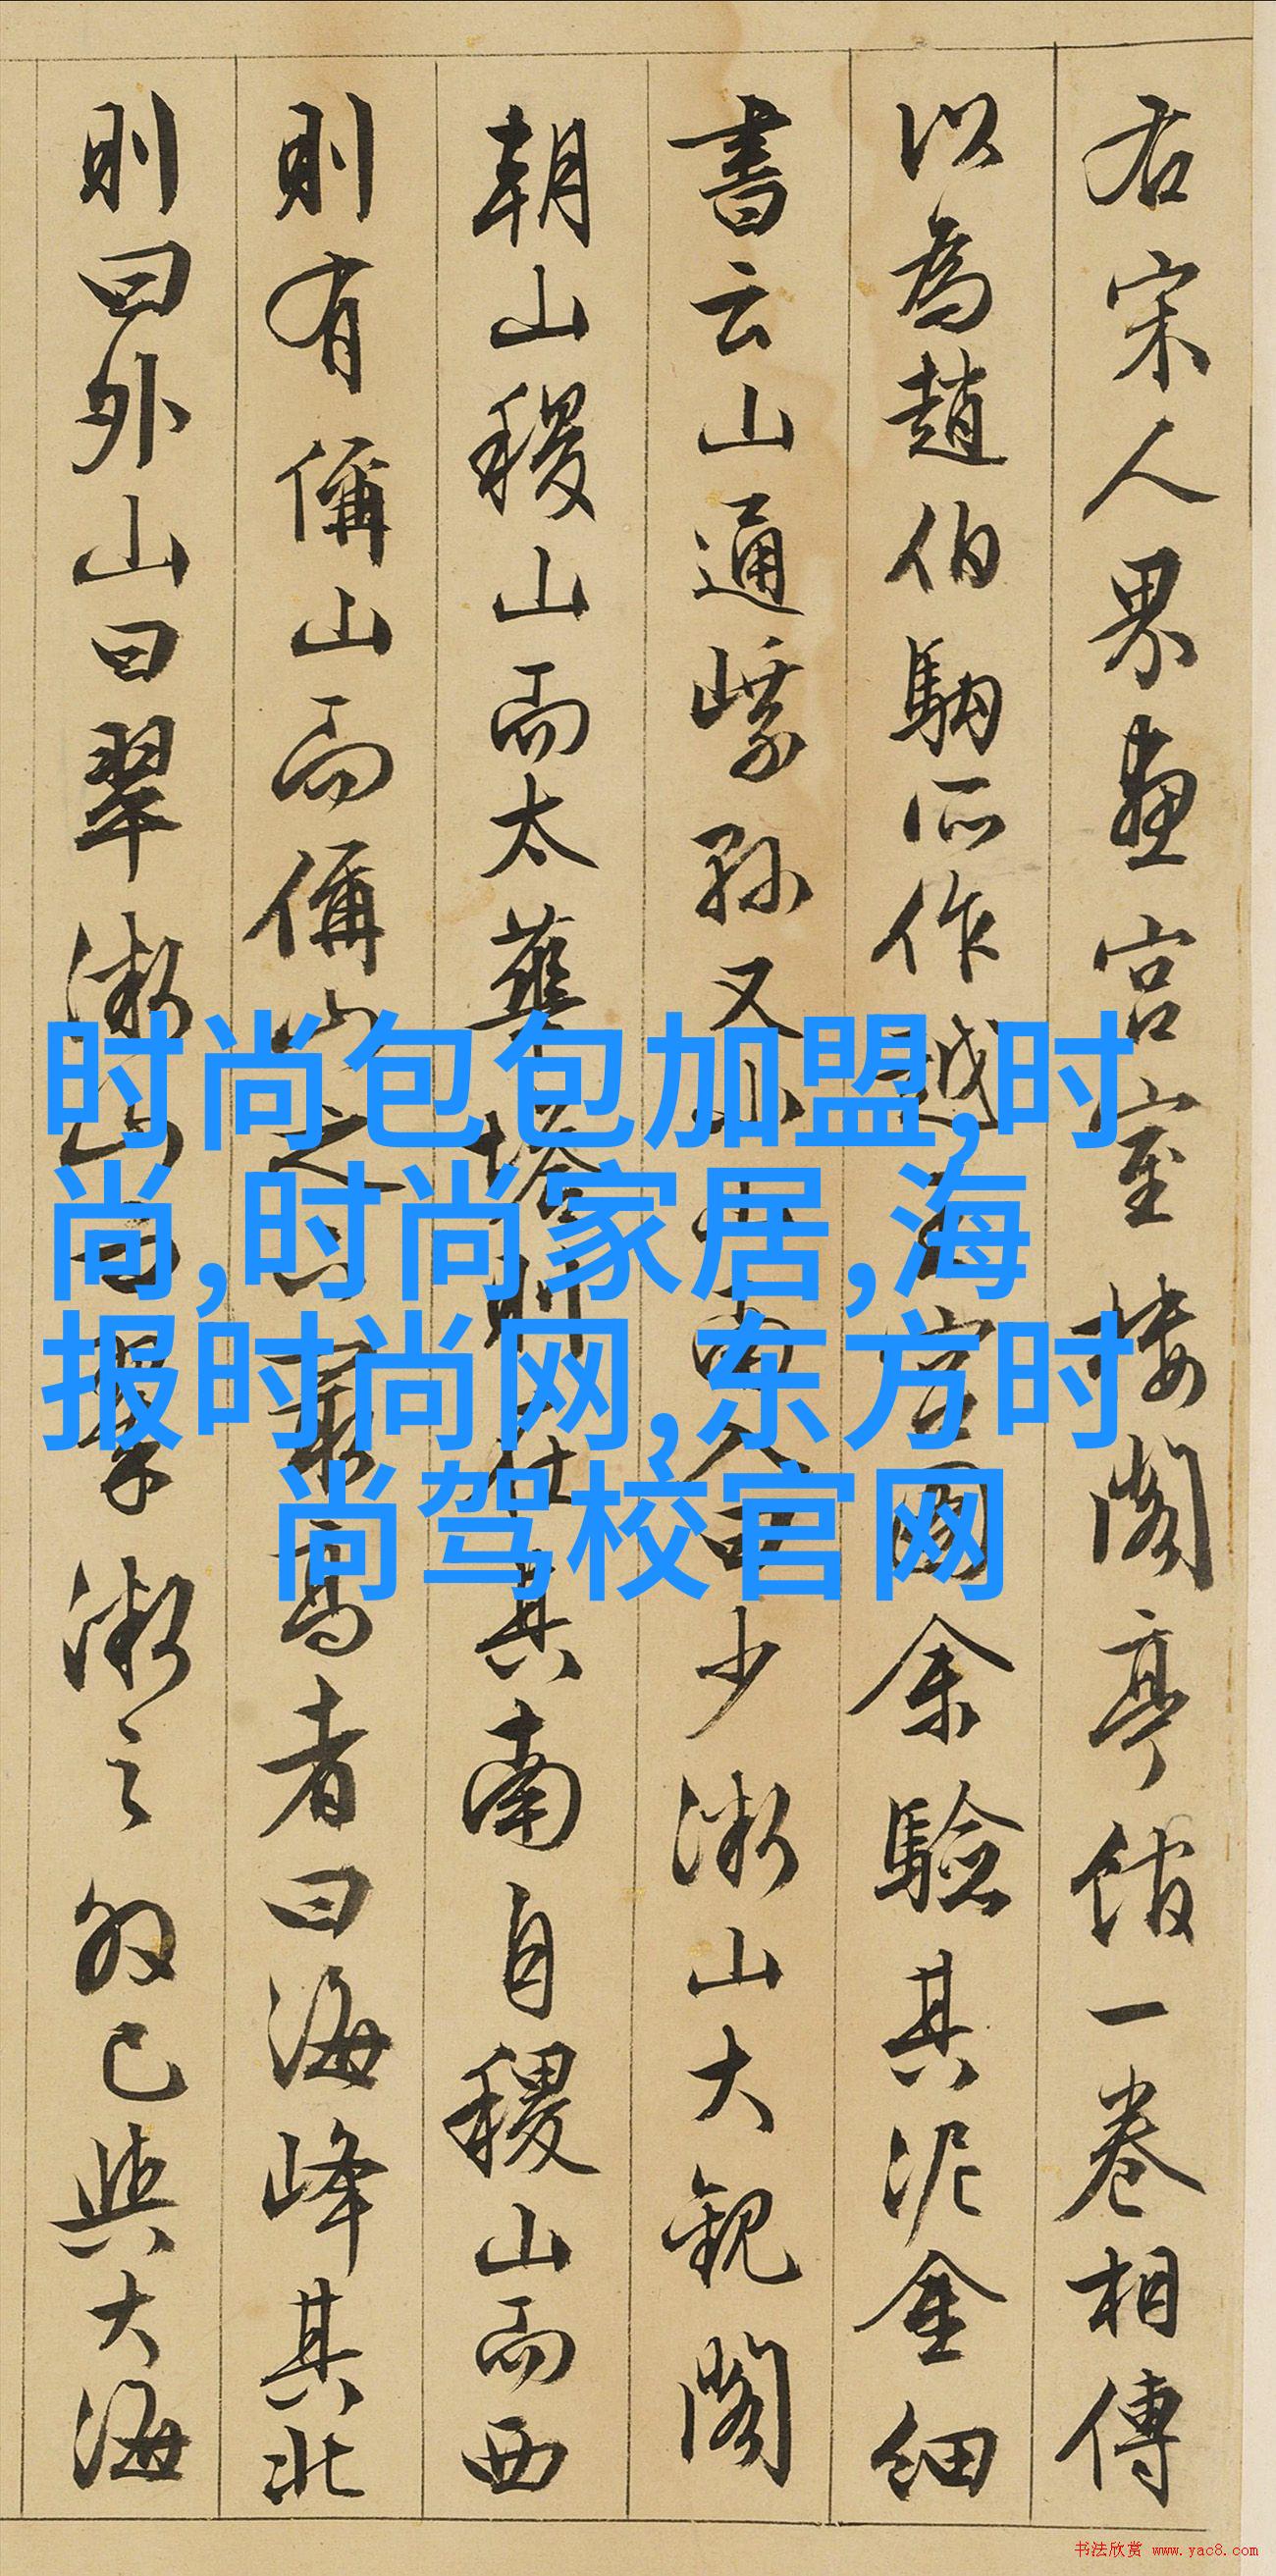 右宋人界畫宮室樓閣亭館一卷相傳
以為趙伯駒所作越
余驗其泥金細
書云山通
孫又
少漱山大觀閣
朝山稷山而太華
塔則在其南自稷山而西
則有偁山而偁山之
最高者曰海峰其北
則曰外山曰翠漱山曰
漱之外已與大海
时尚包包加盟,时
尚,时尚家居,海
报时尚网,东方时
尚驾校官网
书法欣赏 www.yac8.com